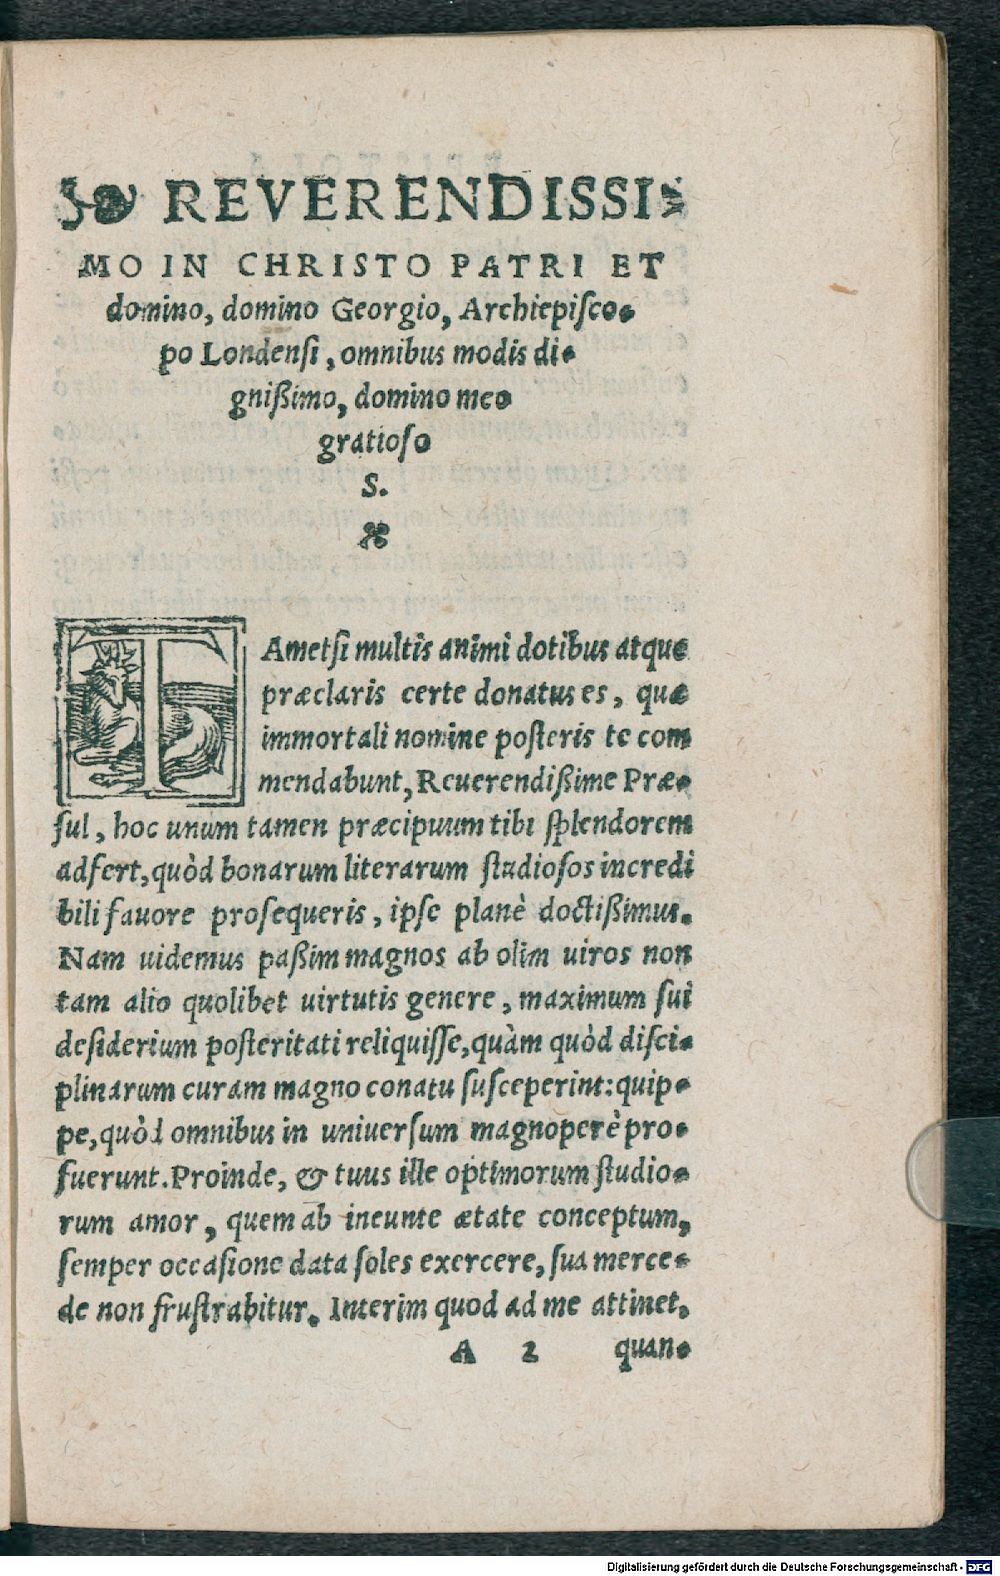 REVERENDISSI-
MO IN CHRISTO PATRI ET
domino, domino Georgio, Archiepiſco-
po Londenſi, omnibus modis di-
gnißimo, domino meo
gratioſo
S.
TAmetſi multis animi dotibus atque
præclaris certe donatus es, quæ
immortali nomine poſteris te com
mendabunt, Reuerendißime Præ-
ſul, hoc unum tamen præcipuum tibi ſplendorem
adfert, quòd bonarum literarum ſtudioſos incredi
bili fauore proſequeris, ipſe planè doctißimus.
Nam uidemus paßim magnos ab olim uiros non
tam alio quolibet uirtutis genere, maximum ſui
deſiderium poſteritati reliquiſſe, quàm quòd diſci-
plinarum curam magno conatu ſuſceperint: quip-
pe, quòd omnibus in uniuerſum magnoperè pro-
fuerunt. Proinde, & tuus ille optimorum ſtudio-
rum amor, quem ab ineunte ætate conceptum,
ſemper occaſione data ſoles exercere, ſua merce-
de non fruſtrabitur. Interim quod ad me attinet,
A 2 quan-
Digitalisierung gefördert durch die Deutsche Forschungsgemeinschaft - DFG